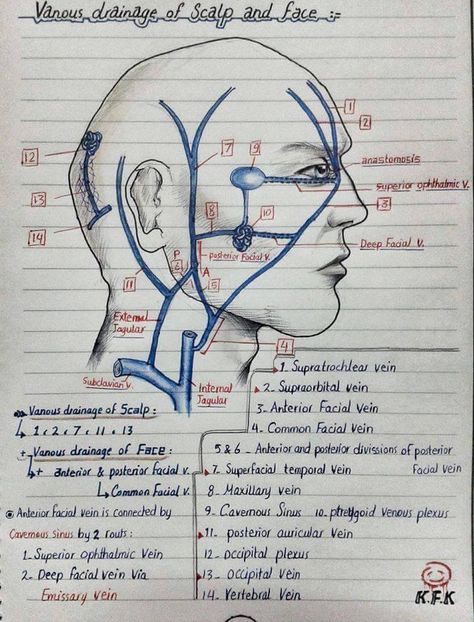 Vanous drainage of Scalp and Face :-
1
2
7
9
12
anastomosis
superior ophthalmic V.
13
3
8
10
14
Deep Facial V.
P
posterior Facial V
6
A
11
5
External
Jagular
4
Subclavian V.
Internal
Jagular
1. Supratrochlear vein
2. Supraorbital vein
3- Anterior Facial Vein
4- Common Facial Vein
5 & 6 - Anterior and posterior divissions of posterior
Facial vein
7- Superfacial temporal Vein
8- Maxillary vein
9- Cavernous Sinus 10- ptreygoid venous plexus
11- posterior auricular Vein
12- occipital plexus
13- occipital Vein
14- Vertebral Vein
Vanous drainage of Scalp :
1 , 2 , 7 , 11 , 13
+ Vanous drainage of Face :
+ anterior & posterior facial v.
Common Facial V.
Anterior Facial vein is connected by
Cavernous sinus by 2 routs :
1- Superior ophthalmic Vein
2- Deep Facial vein Via
Emissary Vein
K.F.K